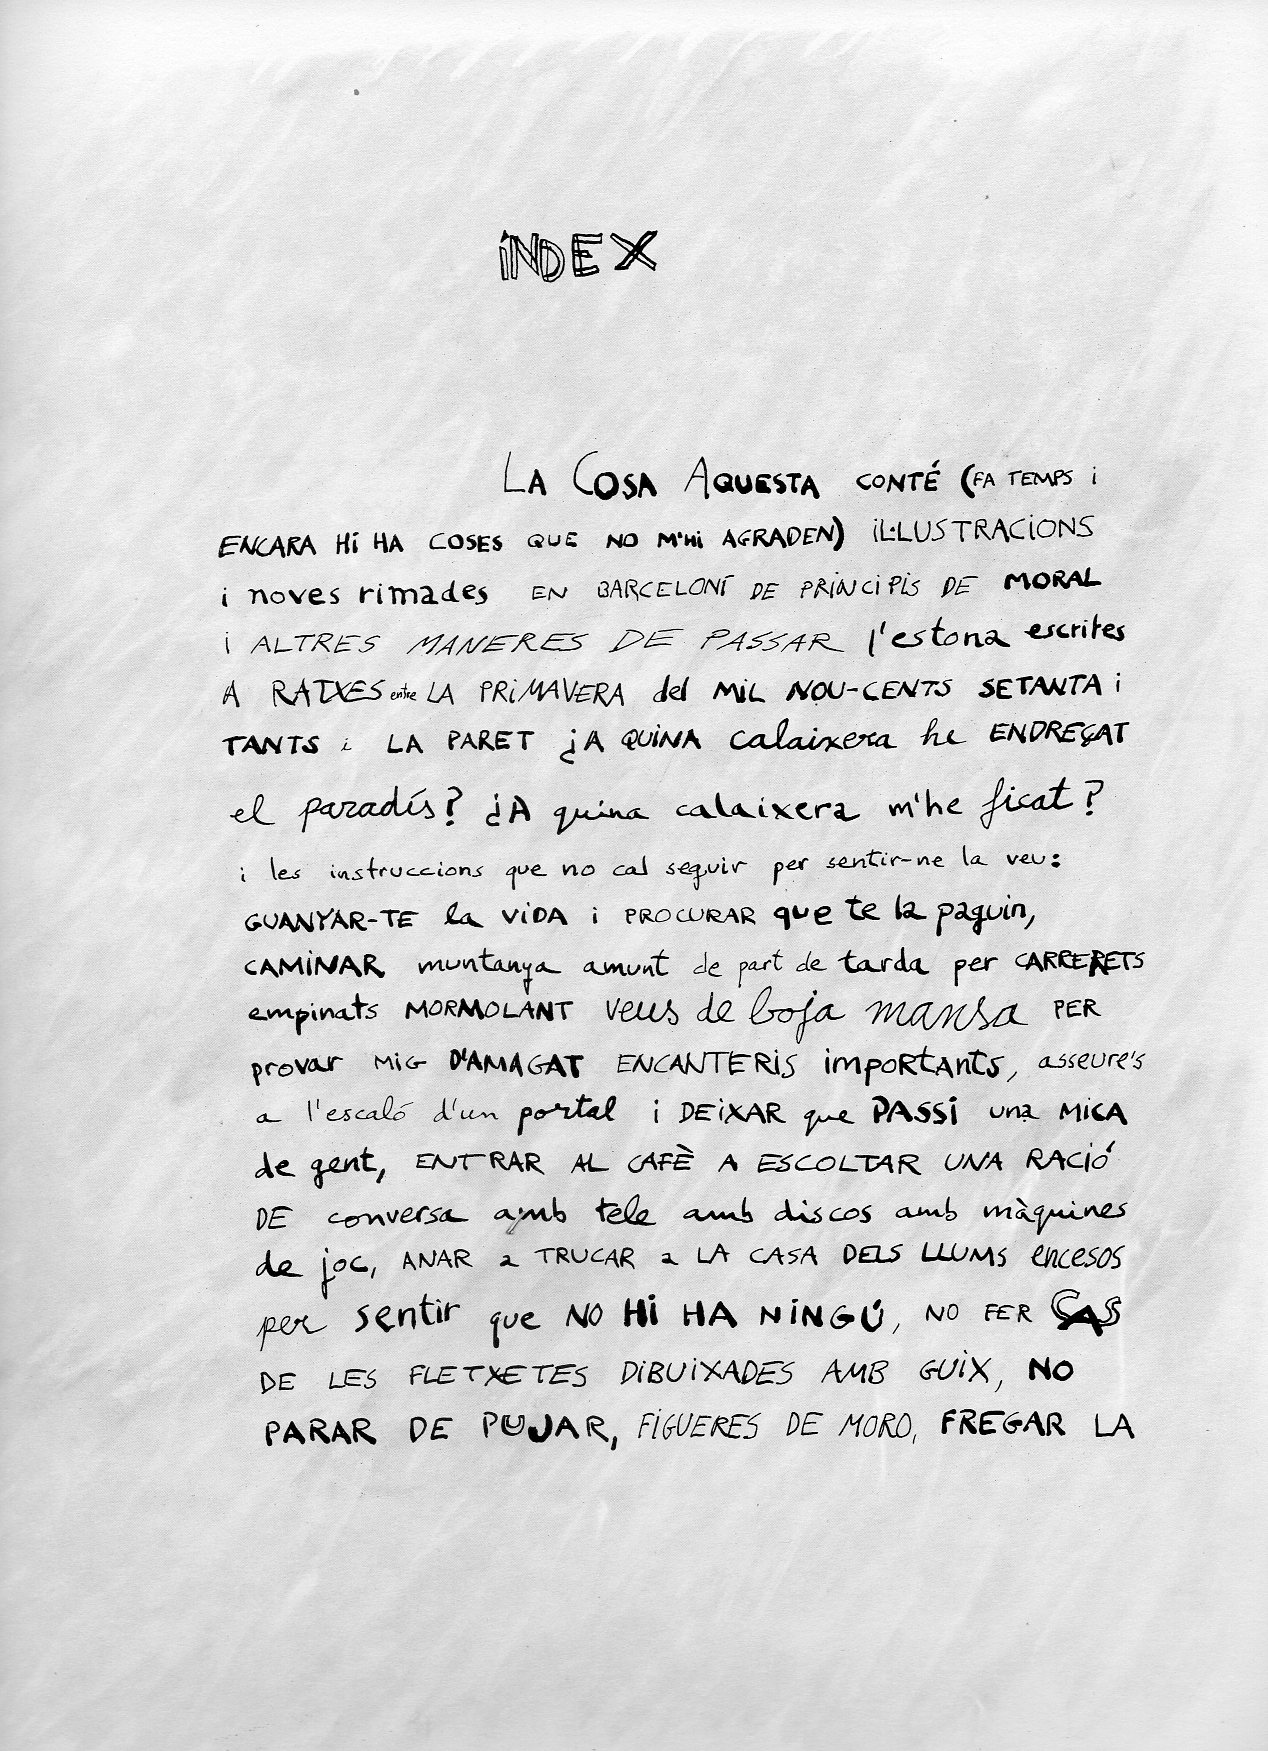 ÍNDEX
LA COSA AQUESTA CONTÉ (FA TEMPS i
ENCARA Hi HA COSES QUE NO M'Hi AGRADEN) iL·LUSTRACiONS
i noves rimades EN BARCELONÍ DE PRiNCiPiS DE MORAL
i ALTRES MANERES DE PASSAR l'estona escrites
A RATXES entre LA PRiMAVERA del MiL NOU-CENTS SETANTA i
TANTS i LA PARET ¿A QUiNA calaixera he ENDREÇAT
el paradís? ¿A quina calaixera m'he ficat?
i les instruccions que no cal seguir per sentir-ne la veu:
GUANYAR-TE la ViDA i PROCURAR que te la paguin,
CAMiNAR muntanya amunt de part de tarda per CARRERETS
empinats MORMOLANT veus de boja mansa PER
provar MiG D'AMAGAT ENCANTERiS importants, asseure's
a l'escaló d'un portal i DEiXAR que PASSi una MiCA
de gent, ENTRAR AL CAFÈ A ESCOLTAR UNA RACiÓ
DE conversa amb tele amb discos amb màquines
de joc, ANAR a TRUCAR a LA CASA DELS LLUMS encesos
per sentir que NO Hi HA NiNGÚ, NO FER CAS
DE LES FLETXETES DiBUiXADES AMB GUiX, NO
PARAR DE PUJAR, FiGUERES DE MORO, FREGAR LA